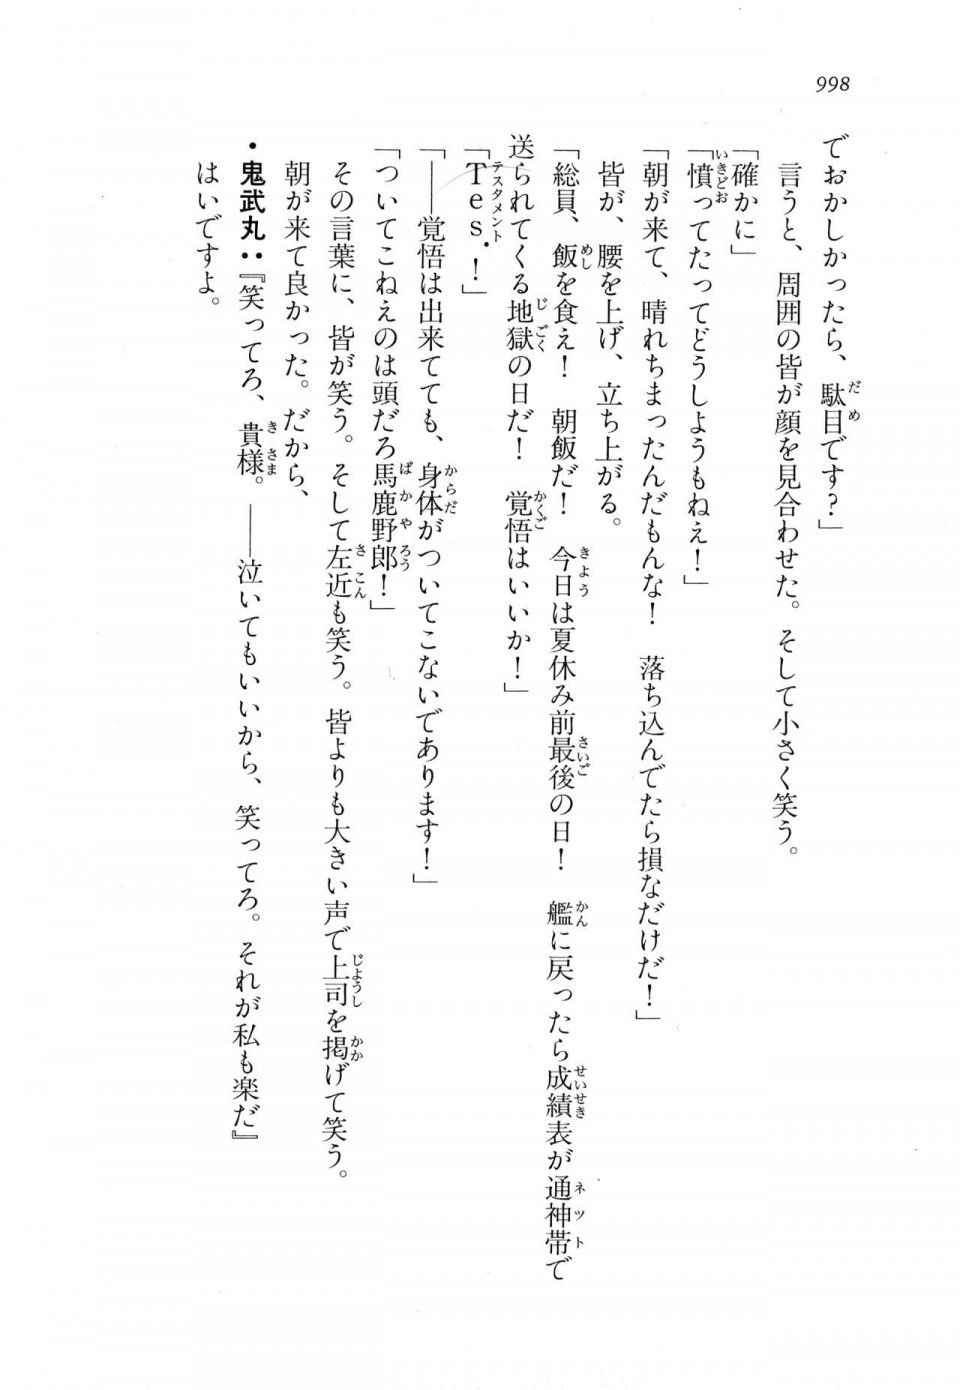 998
でおかしかったら、駄目です？」
言うと、周囲の皆が顔を見合わせた。そして小さく笑う。
「確かに」
「憤ってたってどうしようもねえ！」
「朝が来て、晴れちまったんだもんな！　落ち込んでたら損なだけだ！」
皆が、腰を上げ、立ち上がる。
「総員、飯を食え！　朝飯だ！　今日は夏休み前最後の日！　艦に戻ったら成績表が通神帯で
送られてくる地獄の日だ！　覚悟はいいか！」
「Ｔｅｓ．！」
「――覚悟は出来てても、身体がついてこないであります！」
「ついてこねえのは頭だろ馬鹿野郎！」
その言葉に、皆が笑う。そして左近も笑う。皆よりも大きい声で上司を掲げて笑う。
朝が来て良かった。だから、
・鬼武丸：『笑ってろ、貴様。――泣いてもいいから、笑ってろ。それが私も楽だ』
はいですよ。